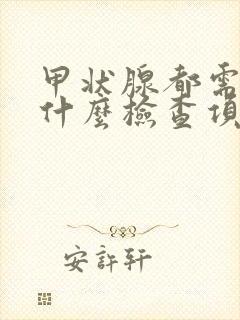 甲状腺都需
什麼檢查項
安許軒